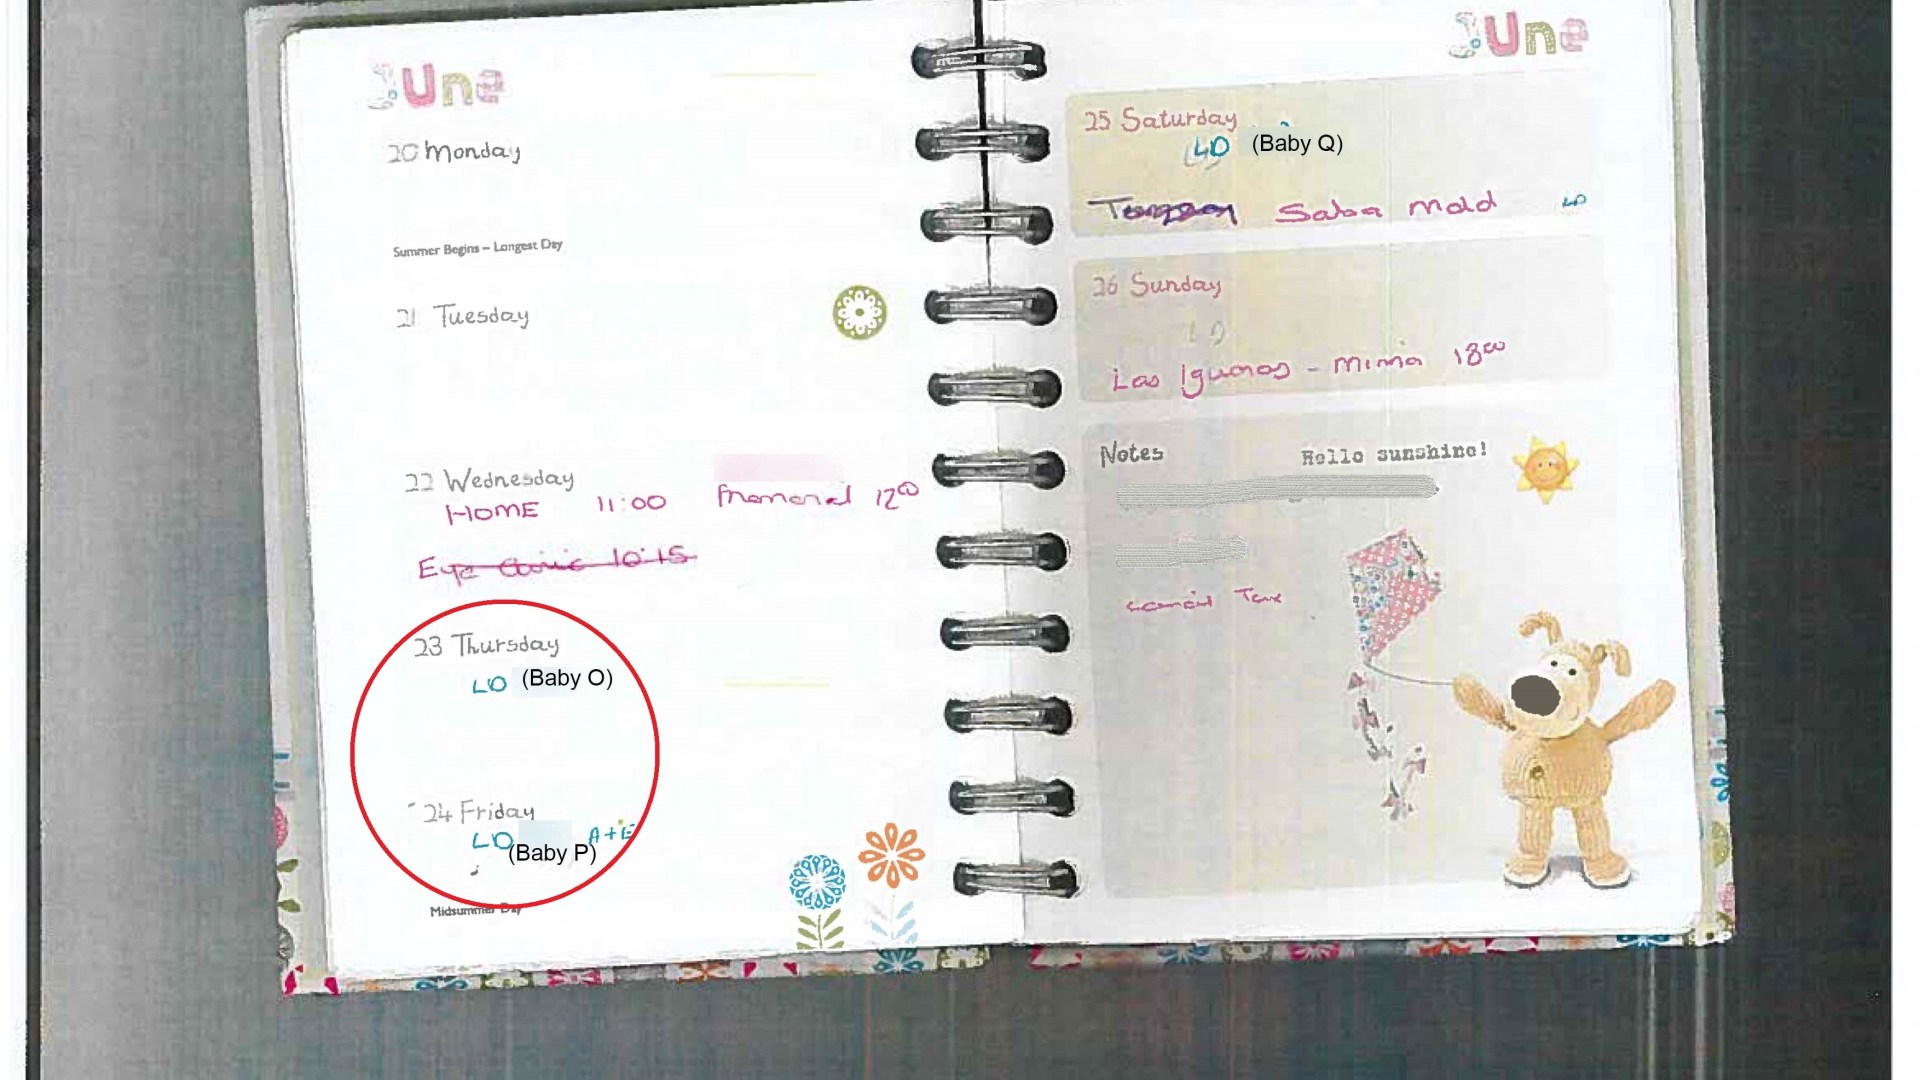 June
20 Monday
Summer Begins – Longest Day
21 Tuesday
22 Wednesday
HOME 11:00 Memorial 1200
Eye Clinic 10:15
23 Thursday
LD (Baby O)
24 Friday
LD A+E
(Baby P)
Midsummer Day
June
25 Saturday
LD (Baby Q)
Salsa Mold LD
26 Sunday
LD
Las Iguanas - Minna 1800
Notes Hello sunshine!
Tax